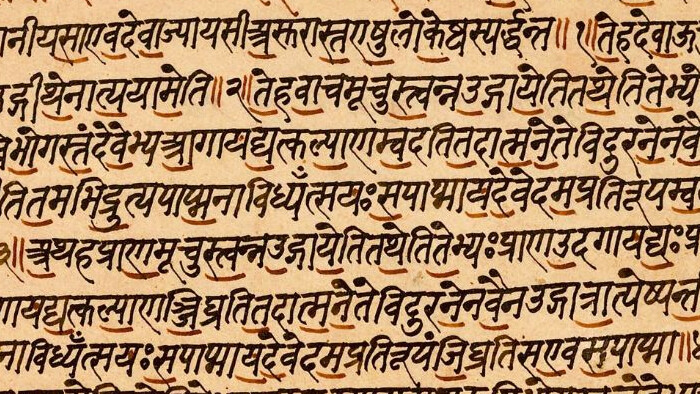 नीयसाएवदेवाज्यायसीअसुरास्तएषुलोकेष्वस्पर्द्धन्त॥१॥तेहदेवाऊ
द्गीथेनात्ययामेति॥२॥तेहवाचमूचुस्त्वन्नउद्गायेतितथेतितेभ्ये
भोगस्तंदेवेभ्यआगायद्यत्कल्याणम्वदतितदात्मनेतेविदुरनेनवै
तितमभिद्रुत्यपाप्मनाविध्यँत्सयःसपाप्मायदेवेदमप्रतिरूपम्व
३॥अथहप्राणमूचुस्त्वन्नउद्गायेतितथेतितेभ्यःप्राणउदगायद्यःप्र
गायद्यत्कल्याणञ्जिघ्रतितदात्मनेतेविदुरनेनवैनउद्गात्रात्येष्यन्ती
नाविध्यँत्सयःसपाप्मायदेवेदमप्रतिरूपंजिघ्रतिसएवसपाप्मा॥४